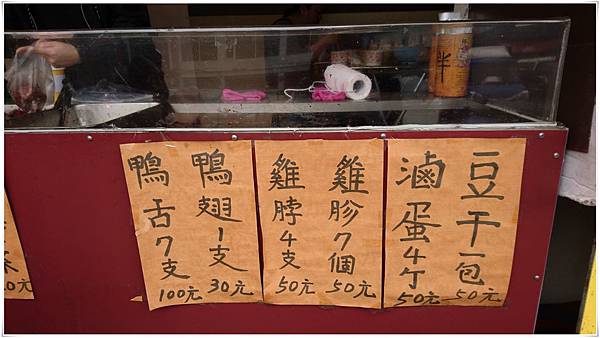 豆干一包
50元
滷蛋4个
50元
雞胗7個
50元
雞脖4支
50元
鴨翅1支
30元
鴨舌7支
100元
半
0元